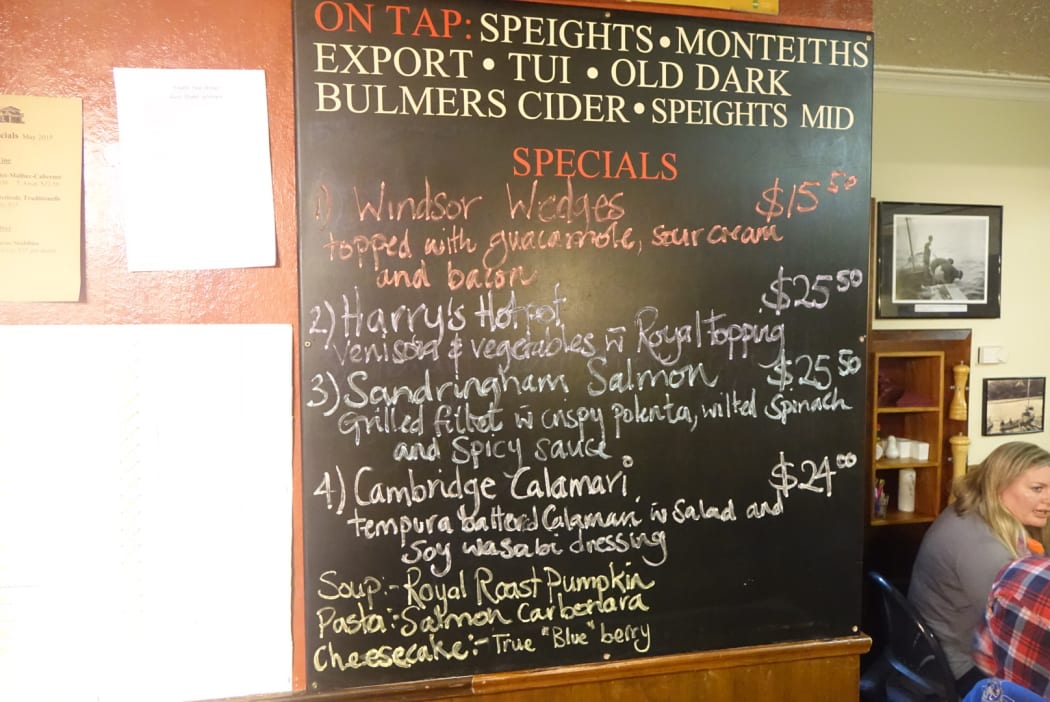 ON TAP: SPEIGHTS • MONTEITHS
EXPORT • TUI • OLD DARK
BULMERS CIDER • SPEIGHTS MID
SPECIALS
1) Windsor Wedges $15 50
topped with guacamole, sour cream
and bacon
2) Harry's Hotpot $25 50
venison & vegetables w Royal topping
3) Sandringham Salmon $25 50
Grilled fillet w crispy polenta, wilted Spinach
and Spicy sauce
4) Cambridge Calamari $24 00
tempura batterd Calamari w Salad and
Soy wasabi dressing
Soup:- Royal Roast Pumpkin
Pasta:- Salmon Carbonara
Cheesecake:- True "Blue" berry
cials May 2015